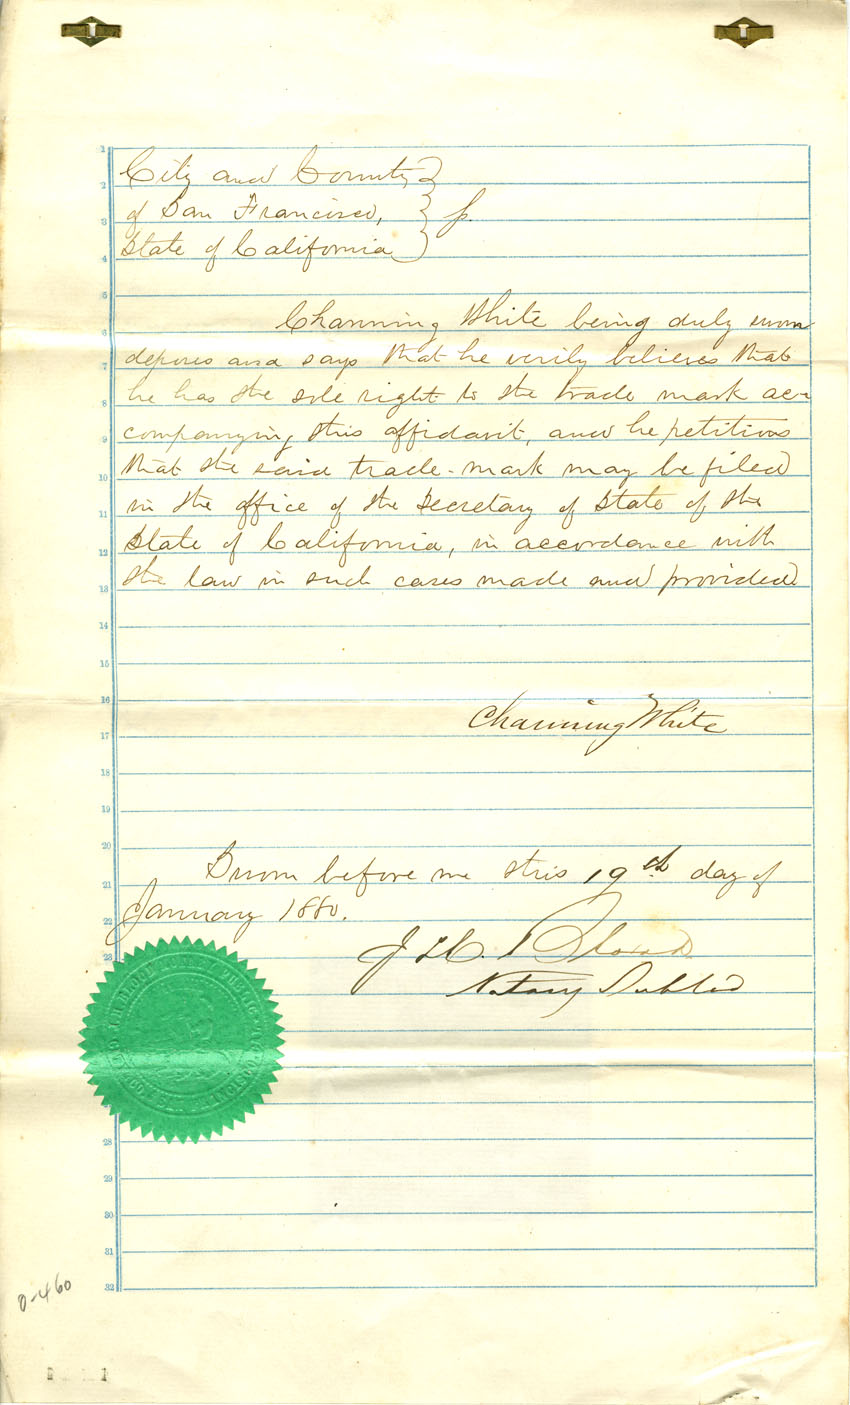 City and County }
of San Francisco, } ss.
State of California }
Channing White being duly sworn
deposes and says that he verily believes that
he has the sole right to the trade mark ac-
companying this affidavit, and he petitions
that the said trade-mark may be filed
in the office of the Secretary of State of the
State of California, in accordance with
the law in such cases made and provided
Channing White
Sworn before me this 19th day of
January 1880.
J H Blood
Notary Public
1
2
3
4
5
6
7
8
9
10
11
12
13
14
15
16
17
18
19
20
21
22
23
28
29
30
31
32
0-460